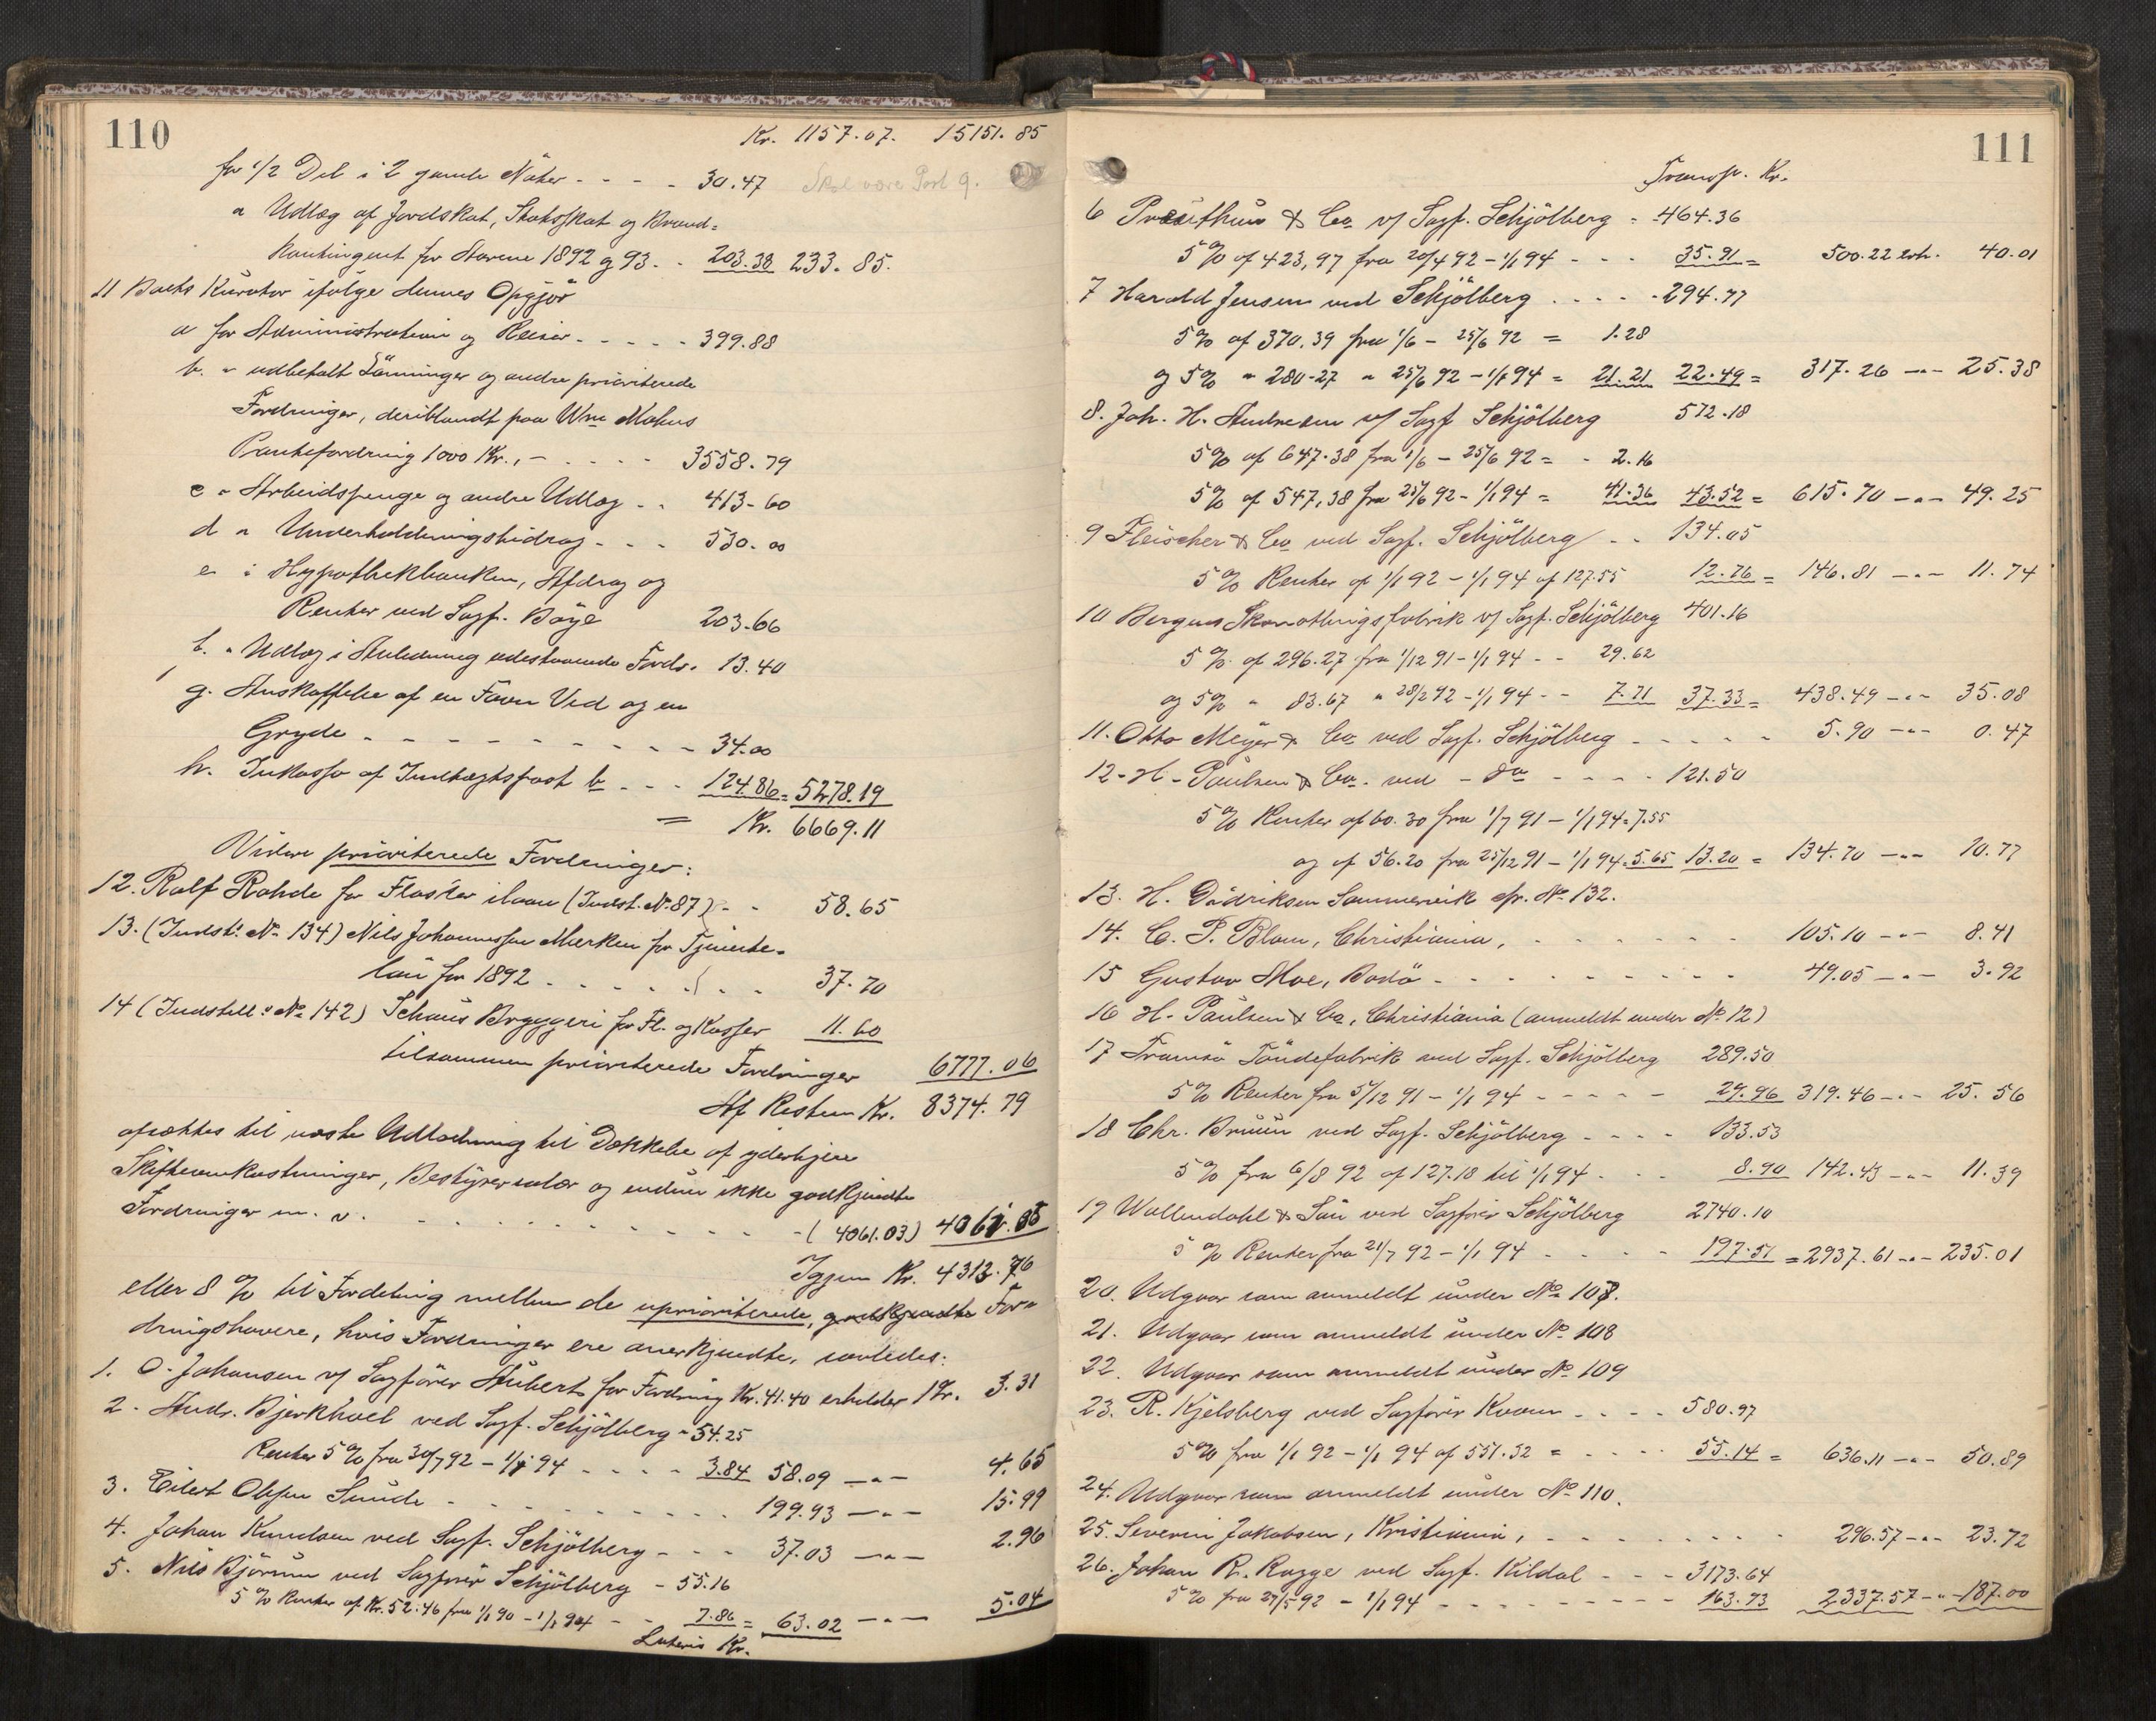 110
Kr. 1157.07. 15151.85
for 1/2 Del i 2 gamle Nöter - - - - 30.47 Skal være Post 9.
" Udlæg af Jordskat, Statsskat og Brand-
kontingent for Aarene 1892 g 93. - 203.38 233.85.
11 Boets Kurator ifölge Hennes Opgjör
a for Administration og Reiser - - - - - 399.88
b. " udbetalt Lönninger og andre prioriterede
Fordringer, deriblandt paa Wm Mohns
Pantefordring 1000 Kr., - - - - - 3558.79
c " Arbeidspenge og andre Udlæg - - 413-60
d " Underholdningsbidrag - - - 530.00
e i Hypothekbanken, Afdrag og
Renter ved Sagf. Böye 203.66
f. " Udlæg i Anledning udestaaende Fordr. 13.40
g. Anskaffelse af en Favn Ved og en
Gryde - - - - - - - - - - 34.00
h. Inkasso af Indtægtspost b - - - 124.86 = 5278.19
= Kr. 6669.11
Videre prioriterede Fordringer:
12. Rolf Rohde for Flasker ilaan (Indst. No 87) - - 58.65
13. (Indst: No 134) Nils Johannessen Marken for Tjeneste-
lön for 1892 - - - - - - - - 37.70
14 (Indstill: No 142) Schous Bryggeri for Fl. og Kasser 11.60
tilsammen prioriterede Fordringer 6777.06
Af Resten Kr. 8374.79
afsættes til næste Udlodning til Dækkelse af yderligere
Skifteomkostninger, Bestyrersalær og endnu ikke godkjendte
Fordringer m. v. - - - - - - - - - (4061.03) 4061.03
Igjen Kr. 4313.76
eller 8 % til Fordeling mellem de uprioriterede, godkjendte For-
dringshavere, hvis Fordringer ere anerkjendte, saaledes:
1. O. Johansen v/ Sagförer Hubert for Fordring Kr. 41.40 erholder Kr. 3.31
2. Andr. Bjerkhoel ved Sagf. Schjölberg - 54.25
Renter 5 % fra 30/7 92 - 1/1 94 - - - - 3.84 58.09 -"- 4.65
3. Eilert Olsen Sunde - - - - - - - - - 199.93 -"- 15.99
4. Johan Knudsen ved Sagf. Schjölberg - - - 37.03 -"- 2.96
5. Nils Björnum ved Sagförer Schjölberg - 55.16
5 % Renter af Kr. 52.46 fra 1/1 90 - 1/1 94 - - 7.86 = 63.02 -"- 5.04
Lateris Kr.
111
Transp. Kr.
6 Preuthun & Co v/ Sagf. Schjölberg - -464.36
5 % af 423,97 fra 20/4 92 - 1/1 94 - - - 35.91 = 500.22 erh. 40.01
7 Harald Jensen ved Schjölberg . . . . -294.77
5 % af 370.39 fra 1/6 - 25/6 92 = 1.28
og 5 % " 280-27 " 25/6 92 - 1/1 94 = 21.21 22.49 = 317.26 -"- 25.38
8. Joh. H. Andresen v/ Sagf Schjölberg 572.18
5 % af 647.38 fra 1/6 - 25/6 92 = - 2.16
5 % af 547,38 fra 25/6 92 - 1/1 94 = 41.36 43.52 = 615.70 -"- 49.25
9 Fleischer & Co ved Sagf. Schjölberg - - 134.05
5 % Renter af 1/1 92 - 1/1 94 af 127.55 12.76 = 146.81 -"- 11.74
10 Bergens Skrothlingsfabrik v/ Sagf. Schjölberg 401.16
5 %. af 296.27 fra 1/12 91 - 1/1 94 - - 29.62
og 5 % " 83.67 " 28/2 92 - 1/1 94 - - 7.71 37.33 = 438.49 -"- 35.08
11. Otto Meyer & Co ved Sagf. Schjölberg - - - - - 5.90 -"- 0.47
12 - H. Paulsen & Co. ved - do - - - - 121.50
5 % Renter af 60.30 fra 1/7 91 - 1/1 94 = 7.55
og af 56.20 fra 25/12 91 - 1/1 94 = 5.65 13.20 = 134.70 -"- 10.77
13. H. Didriksen Sannervik cfr. No 132.
14. C. P. Blom, Christiania, - - - - - - - 105.10 -"- 8.41
15 Gustav Moe, Bodö - - - - - - - - - - 49.05 -"- 3.92
16 H. Paulsen & Co, Christiania (anmeldt under No 12)
17 Tromsö Töndefabrik ved Sagf. Schjölberg 289.50
5 % Renter fra 5/12 91 - 1/1 94 - - - - - 29.96 319.46 -"- 25.56
18 Chr. Bruun ved Sagf. Schjölberg - - - - 133.53
5 % fra 6/8 92 af 127.18 til 1/1 94 - - - 8.90 142.43 -"- 11.39
19 Wallendahl & Sön ved Sagförer Schjölberg 2740.10
5 % Renter fra 21/7 92 - 1/1 94 - - - - 197.51 = 2937.61 -"- 235.01
20. Udgaar som anmeldt under No 107.
21. Udgaar som anmeldt under No 108
22. Udgaar som anmeldt under No 109
23. R. Kjelsberg ved Sagförer Kvaen - - - - 580.97
5 % fra 1/1 92 - 1/1 94 af 551.52 = - - - - 55.14 = 636.11 -"- 50.89
24. Udgaar som anmeldt under No 110.
25. Severin Jakobsen, Kristiania, - - - - - - - - 296.57 -"- 23.72
26. Johan R. Rogge ved Sagf. Kildal - - - 3173.64
5 % fra 27/5 92 - 1/1 94 - - - - - - - - - 163.93 2337.57 -"- 187.00